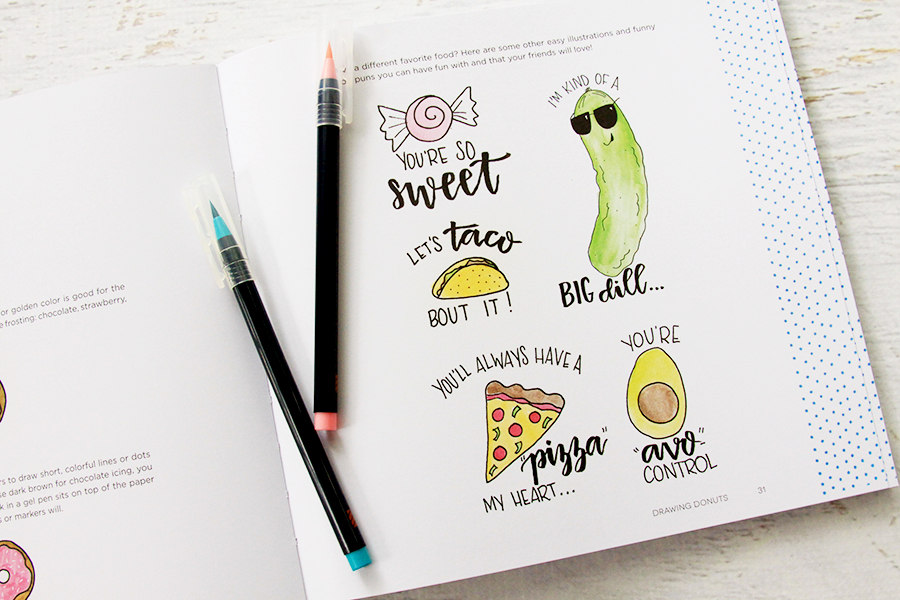 or golden color is good for the
frosting: chocolate, strawberry,
ers to draw short, colorful lines or dots
se dark brown for chocolate icing, you
k in a gel pen sits on top of the paper
s or markers will.
a different favorite food? Here are some other easy illustrations and funny
puns you can have fun with and that your friends will love!
YOU'RE SO
sweet
I'M KIND OF A
BIG dill...
LET'S taco
BOUT IT!
YOU'LL ALWAYS HAVE A
"pizza"
MY HEART...
YOU'RE
"avo"
CONTROL
DRAWING DONUTS 31